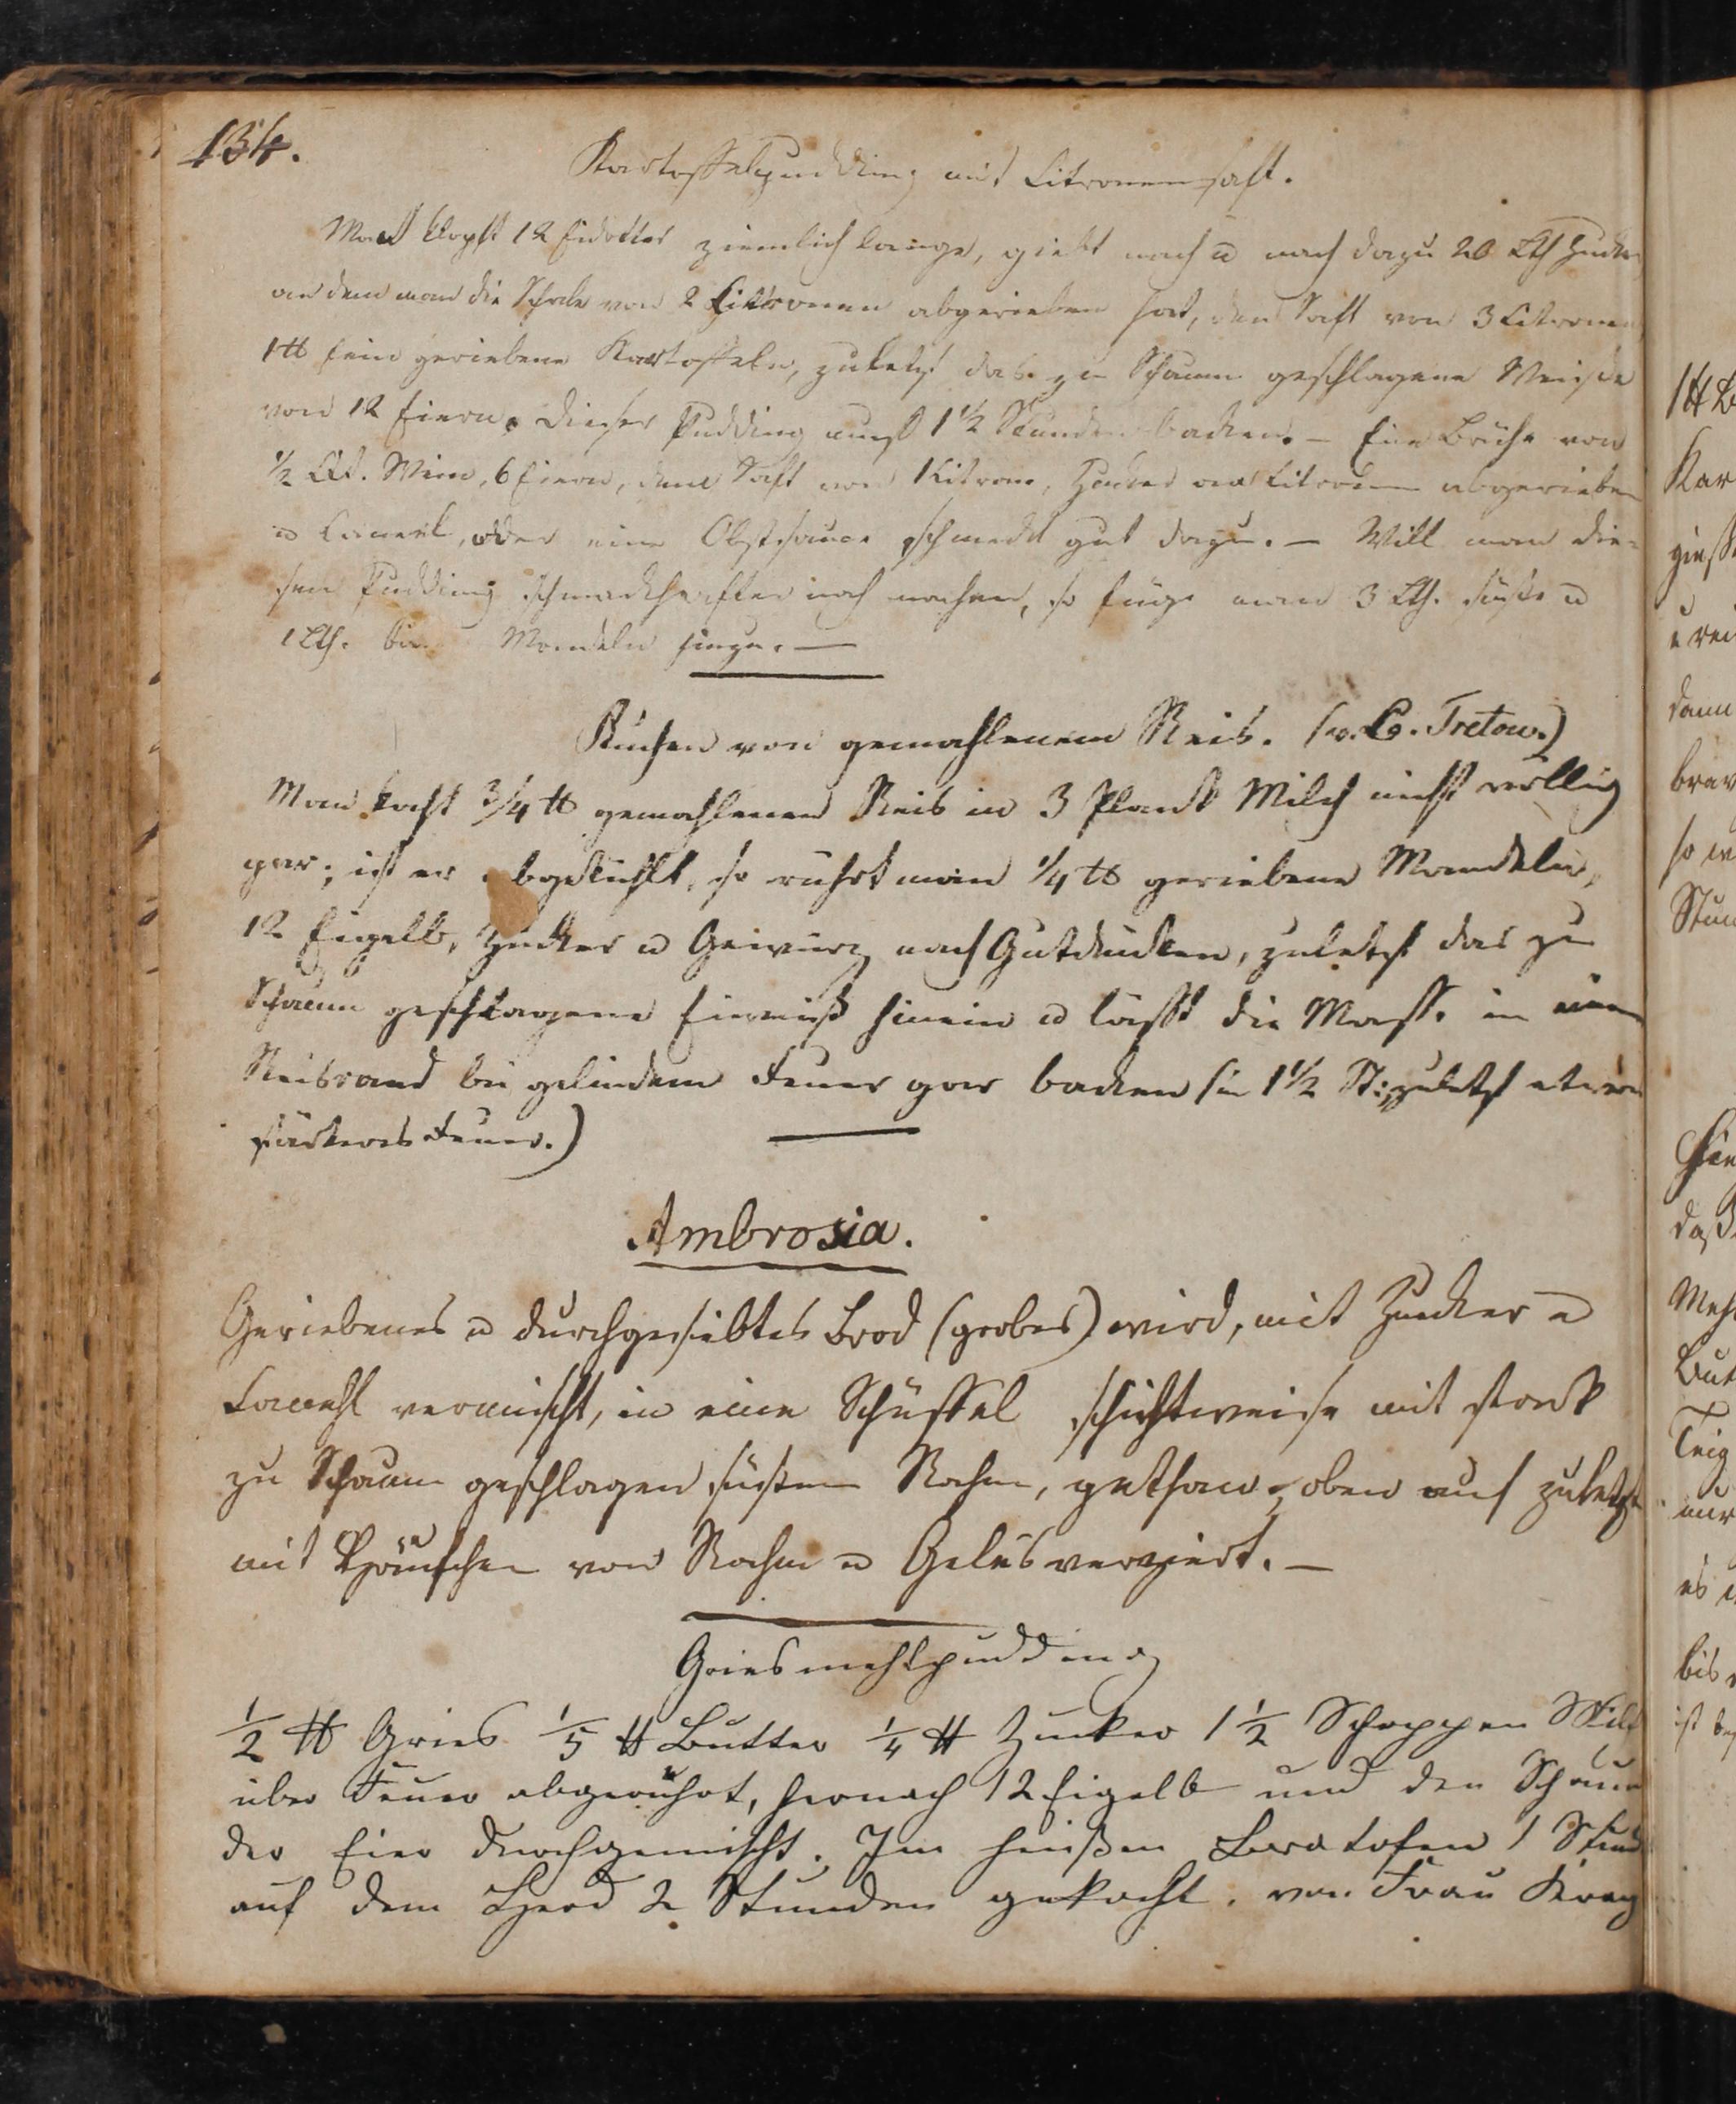 134.
Kartoffelpudding mit Citronensaft.
Man klopft 12 Eidotter ziemlich lange, giebt nach u nach dazu 20 Lth Zucker
an dem man die Schale von 2 Citronen abgerieben hat, den Saft von 3 Citronen
1 ℔ fein geriebene Kartoffeln, zuletzt das zu Schaum geschlagene Weiße
von 12 Eiern. Dieser Pudding muß 1 1/2 Stunden backen. – Eine Brühe von
1/2 Wein, 6 Eiern, dem Saft von 1 Citrone, Zucker an Citronen abgerieben
u Caneel, oder eine Obstsauce schmeckt gut dazu. – Will man die-
sen Pudding schmackhafter noch machen, so füge man 3 Lth. süße u
1 Lth. Mandeln hinzu. –
Kuchen von gemahlenem Reis. (v. C. Tretow.)
Man kocht 3/4 ℔ gemahlenen Reis in 3 Plank Milch nicht völlig
gar; ist er abgekühlt, so rührt man 1/4 ℔ geriebene Mandeln,
12 Eigelb, Zucker u Gewürz nach Gutdünken, zuletzt das zu
Schaum geschlagene Eierweiß hinein u läßt die Masse in einem
Reisrand bei gelindem Feuer gar backen (in 1 1/2 St; zuletzt etwas
stärkeres Feuer.)
Ambrosia.
Geriebenes u durchgesiebtes Brod (grobes) wird, mit Zucker u
Canehl vermischt, in eine Schüssel schichtweise mit stark
zu Schaum geschlagen süßem Rahm, gethan, oben auf zuletzt
mit von Rahm u Gelée verziert. –
Griesmehlpudding
1/2 ℔ Gries 1/5 ℔ Butter 1/4 ℔ Zucker 1 1/2 Schoppen Milch
über Feuer abgerührt, hernach 12 Eigelb und den Schaum
der Eier durchgemischt. Im heißen Bratofen 1 Stund
auf dem Herd 2 Stunden gekocht. von Frau